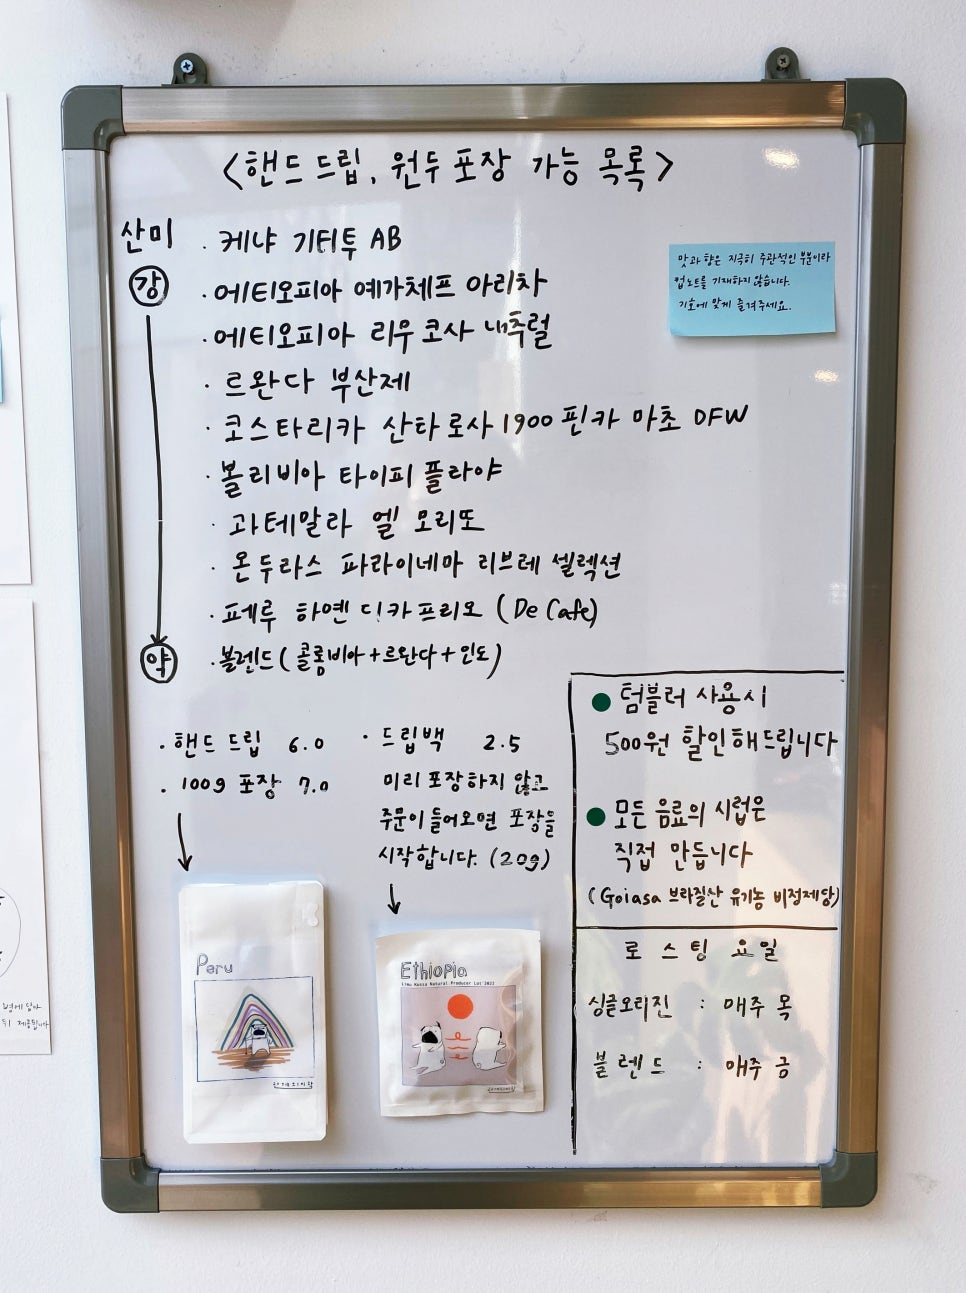 <핸드 드립, 원두 포장 가능 목록>
산미
강
· 케냐 기터투 AB
· 에티오피아 예가체프 아리차
· 에티오피아 리무 코사 내추럴
· 르완다 부산제
· 코스타리카 산타로사 1900 핀카 마초 DFW
· 볼리비아 타이피플라야
· 과테말라 엘 모리또
· 온두라스 파라이네마 리브레 셀렉션
· 페루 하엔 디카프리오 (De Cafe)
약
· 블렌드 (콜롬비아+르완다+인도)
맛과 향은 지극히 주관적인 부분이라
컵노트를 기재하지 않습니다.
기호에 맞게 즐겨주세요.
· 핸드 드립 6.0
· 100g 포장 7.0
· 드립백 2.5
미리 포장하지 않고
주문이 들어오면 포장을
시작합니다. (20g)
● 텀블러 사용시
500원 할인해드립니다
● 모든 음료의 시럽은
직접 만듭니다
(Goiasa 브라질산 유기농 비정제당)
로스팅 요일
싱글오리진 : 매주 목
블렌드 : 매주 금
Peru
Ethiopia
Limu Kossa Natural Producer Lot 2023